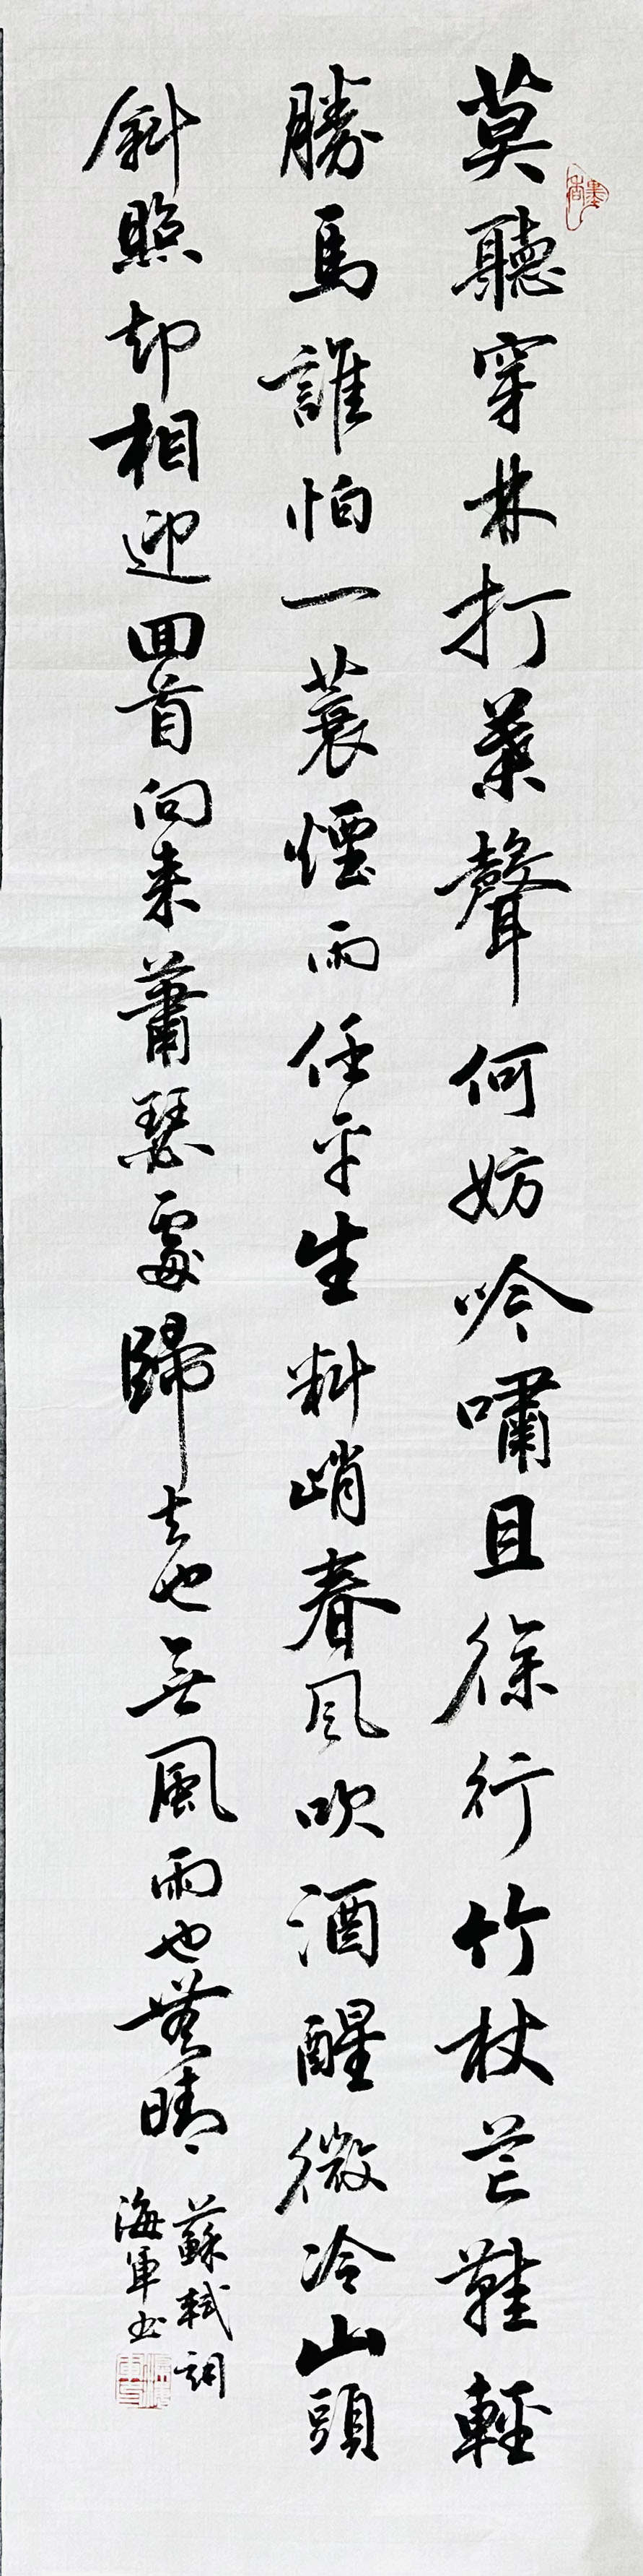 莫聽穿林打葉聲何妨吟嘯且徐行竹杖芒鞋輕
勝馬誰怕一蓑煙雨任平生料峭春風吹酒醒微冷山頭
斜照却相迎回首向来蕭瑟處歸去也無風雨也無晴
蘇軾詞
海軍书